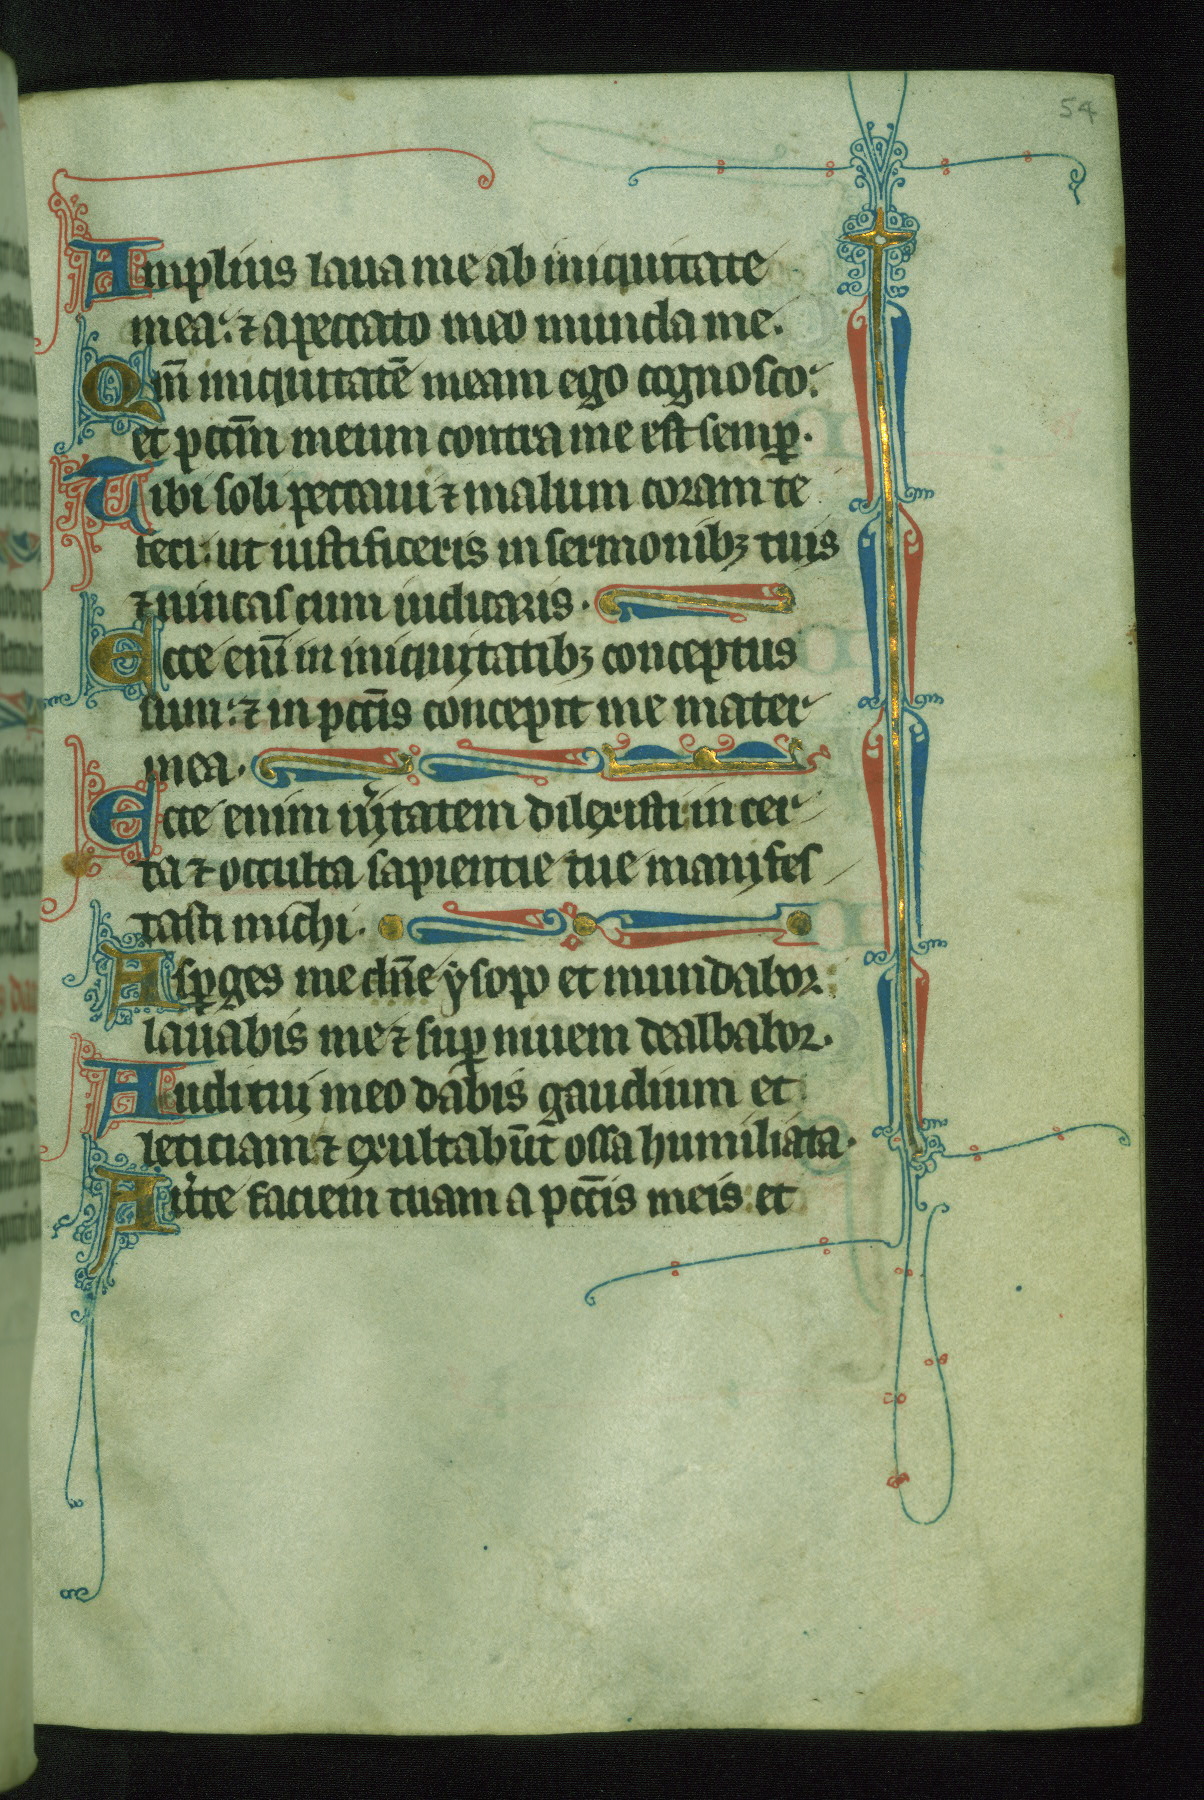 54
Amplius laua me ab iniquitate
mea: ⁊ a peccato meo munda me.
Qm̄ iniquitatē meam ego cognosco:
et pccm̄ meum contra me est semꝑ.
Tibi soli peccaui ⁊ malum coram te
feci: ut iustificeris in sermonibꝫ tuis
⁊ uincas cum iudicaris.
Ecce eni̅ in iniquitatibꝫ conceptus
sum: ⁊ in pcc̄is concepit me mater
mea.
Ecce enim ueritatem dilexisti: incer
ta ⁊ occulta sapientie tue manifes
tasti michi.
Asꝑges me dn̄e ysopo et mundabor:
lauabis me ⁊ suꝑ niuem dealbabor.
Auditui meo dabis gaudium et
leticiam: ⁊ exultabūt ossa humiliata.
Au̾te faciem tuam a pcc̄is meis: et